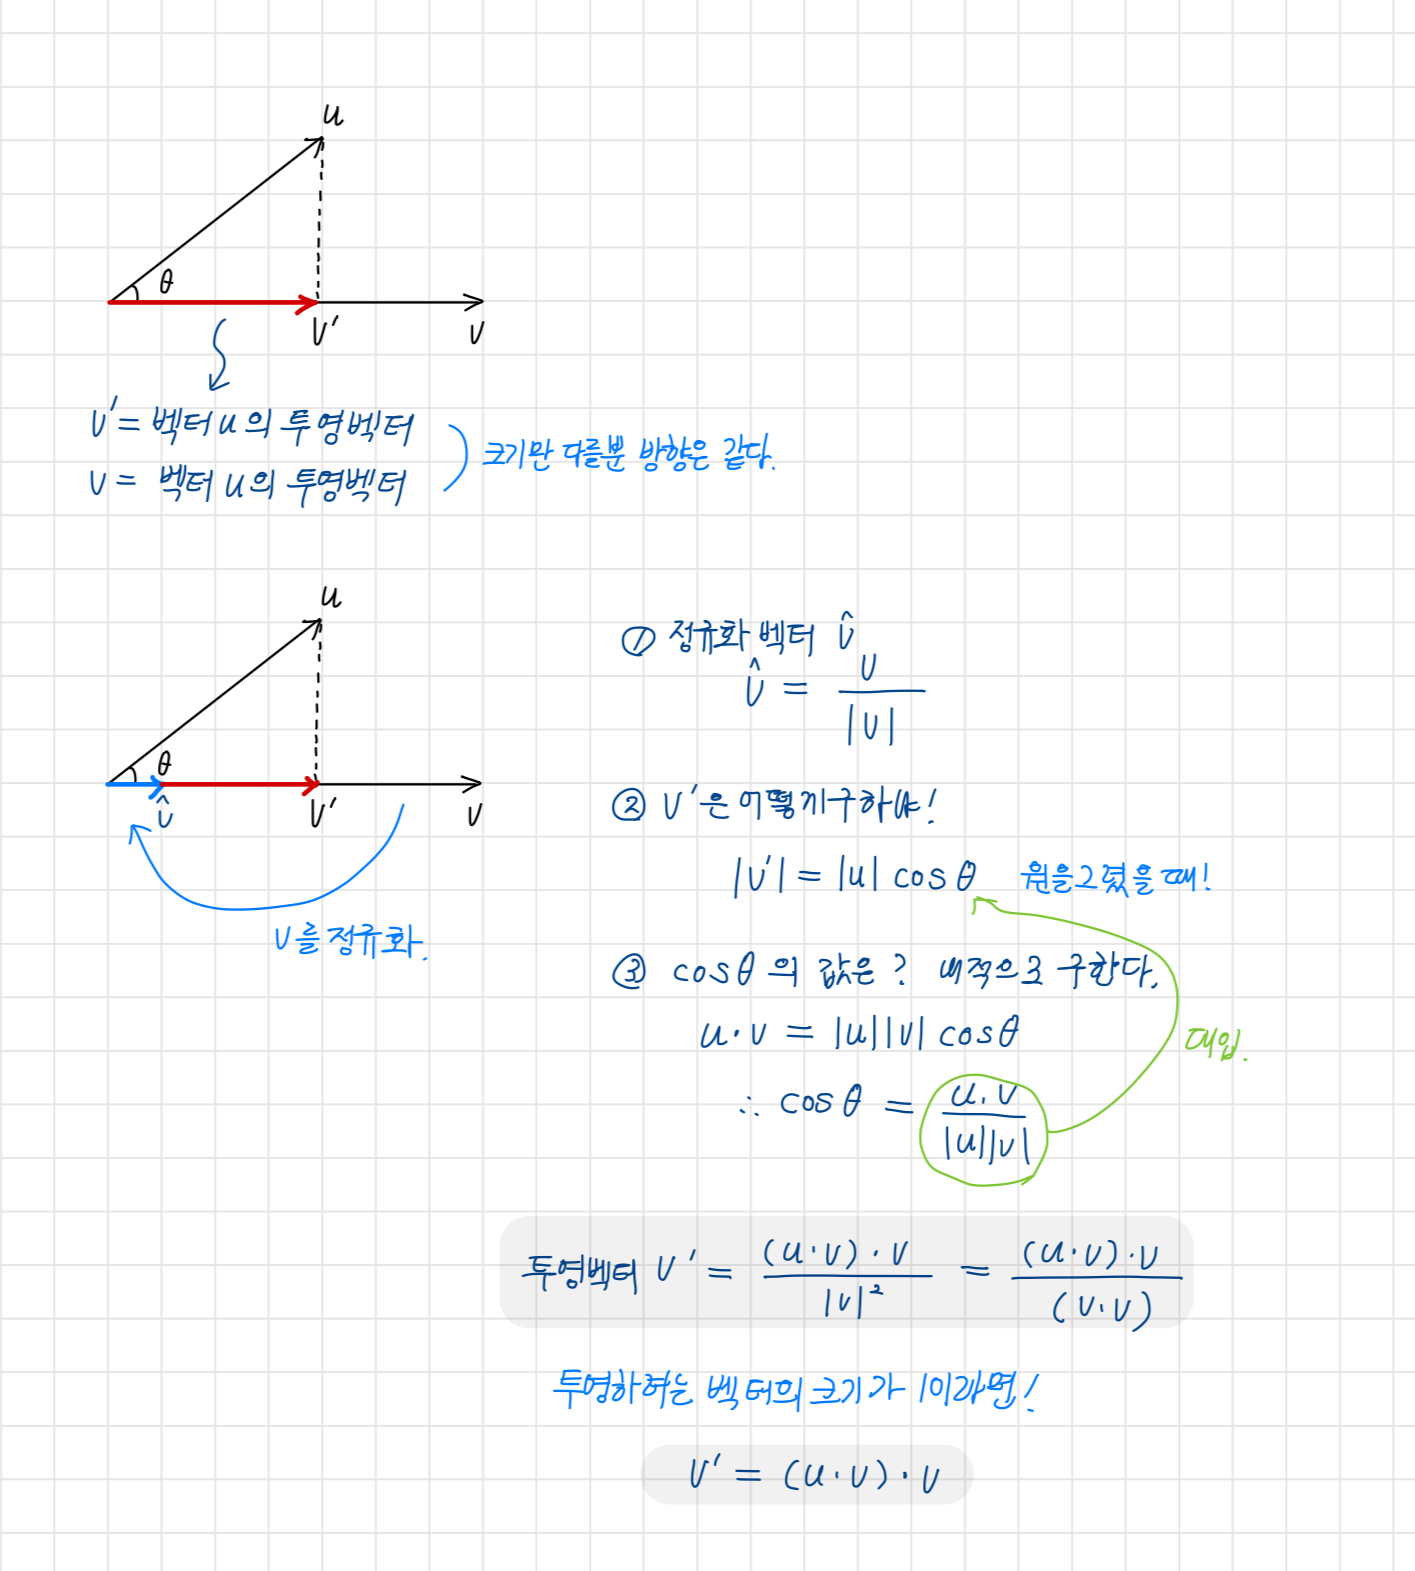 u
θ
v'
v
v' = 벡터 u의 투영벡터
v = 벡터 u의 투영벡터
크기만 다를뿐 방향은 같다.
u
θ
v̂
v'
v
v를 정규화.
① 정규화 벡터 v̂
v̂ = v / |v|
② v'은 어떻게 구하냐!
|v'| = |u| cosθ 원을 그렸을 때!
③ cosθ의 값은? 내적으로 구한다.
u·v = |u||v| cosθ
대입.
∴ cosθ = u·v / |u||v|
투영벡터 v' = (u·v)·v / |v|² = (u·v)·v / (v·v)
투영하려는 벡터의 크기가 1이라면!
v' = (u·v)·v